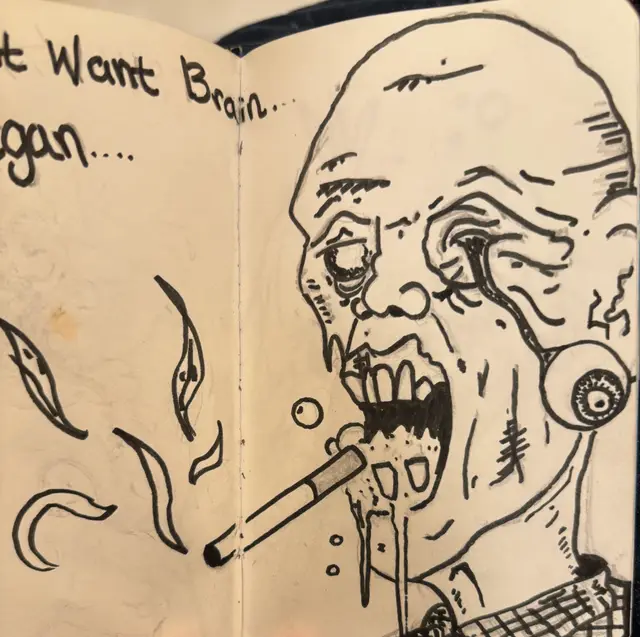 t Want Brain...
gan....